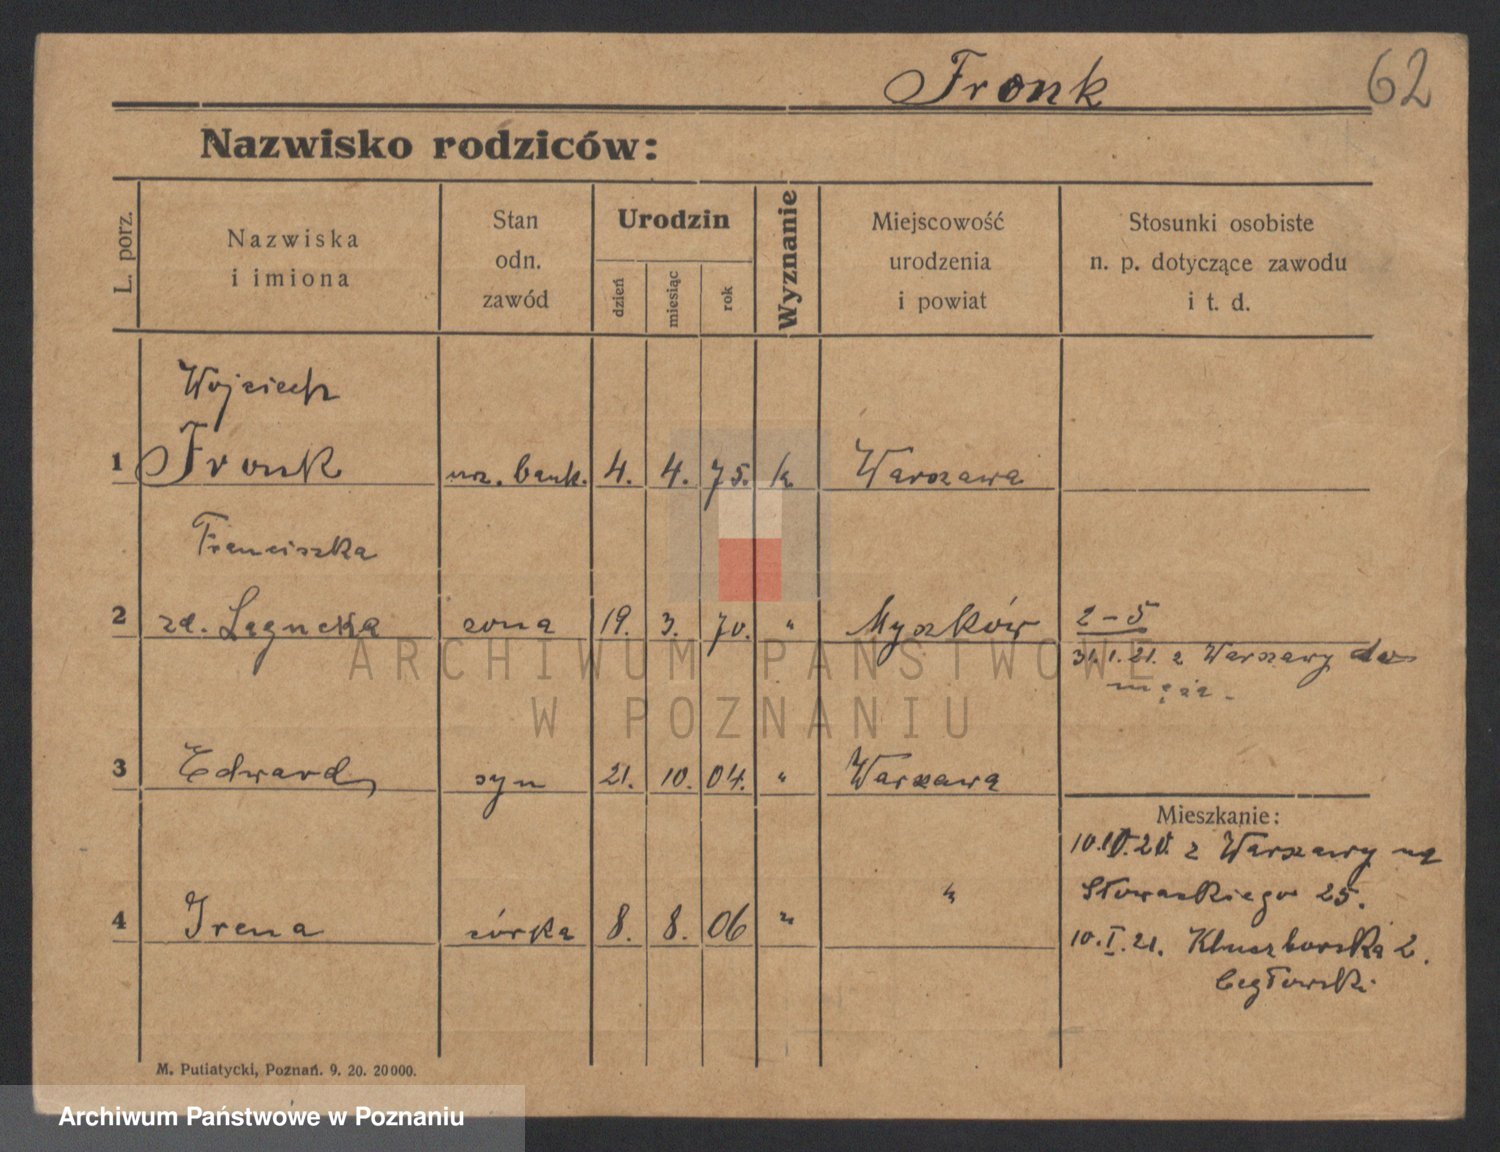 Fronk
62
Nazwisko rodziców:
L. porz.
Nazwiska
i imiona
Stan
odn.
zawód
Urodzin
dzień
miesiąc
rok
Wyznanie
Miejscowość
urodzenia
i powiat
Stosunki osobiste
n. p. dotyczące zawodu
i t. d.
Wojciech
1 Fronk urz. bank. 4. 4. 75. k Warszawa
Franciszka
2 zd. żona 19. 3. 70. " Myszków 2-5
31.1.21. z Warszawy do
męża.
3 Edward syn 21. 10. 04. " Warszawa
Mieszkanie:
z Warszawy na
4 Irena córka 8. 8. 06 " "
Słowackiego 25.
10.I.21. Kluczborska 2.
Cegłowski
M. Putiatycki, Poznań. 9. 20. 20000.
ARCHIWUM PAŃSTWOWE
W POZNANIU
Archiwum Państwowe w Poznaniu